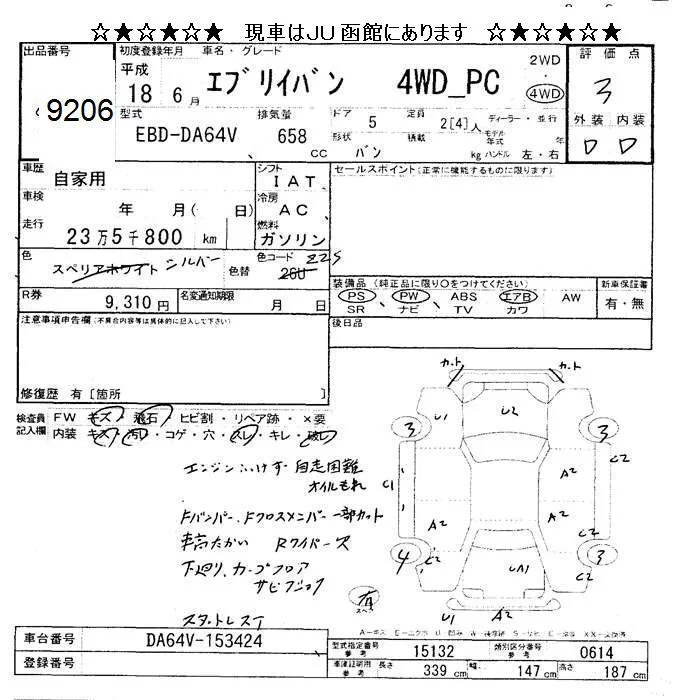 ☆★☆★☆★ 現車はJU函館にあります ☆★☆★☆★
出品番号 9206
初度登録年月 平成 18 6月
車名・グレード エブリイバン 4WD_PC
2WD・4WD
評価点 3
外装 内装 D D
型式 EBD-DA64V
排気量 658 cc
ドア 5
定員 2[4]人
ディーラー・並行
形状 バン
積載 kg
モデル年式 年
ハンドル 左・右
車歴 自家用
シフト IAT
セールスポイント(正常に機能するものに限ります)
車検 年 月( 日)
冷房 AC
走行 23万5千800 km
燃料 ガソリン
色 スペリアホワイト シルバー
色替
色コード 26U Z2S
装備品 (純正品に限り○をつけてください)
新車保証書 有・無
PS PW ABS エアB AW
SR ナビ TV カワ
R券 9,310円
名変通知期限 月 日
後日品
注意事項申告欄(不具合内容等は具体的に記入して下さい)
修復歴 有[箇所 ]
検査員記入欄
FW キズ・飛石・ヒビ割・リペア跡・×要
内装 キズ・汚レ・コゲ・穴・スレ・キレ・破レ
エンジンふけず 自走困難
オイルもれ
Fバンパー、Fクロスメンバー一部カット
車高たかい Rワイパーズ
下廻り、カーゴフロア
サビ
スタットレス
カット カット
U1 U2
3 3
A2 C2
C1
A2 A2
4 C2 UA1 C2 3
有
U1 A2
車台番号 DA64V-153424
登録番号
型式指定番号 参考 15132
類別区分番号 参考 0614
車庫証明用 参考 長さ 339 cm 幅 147 cm 高さ 187 cm